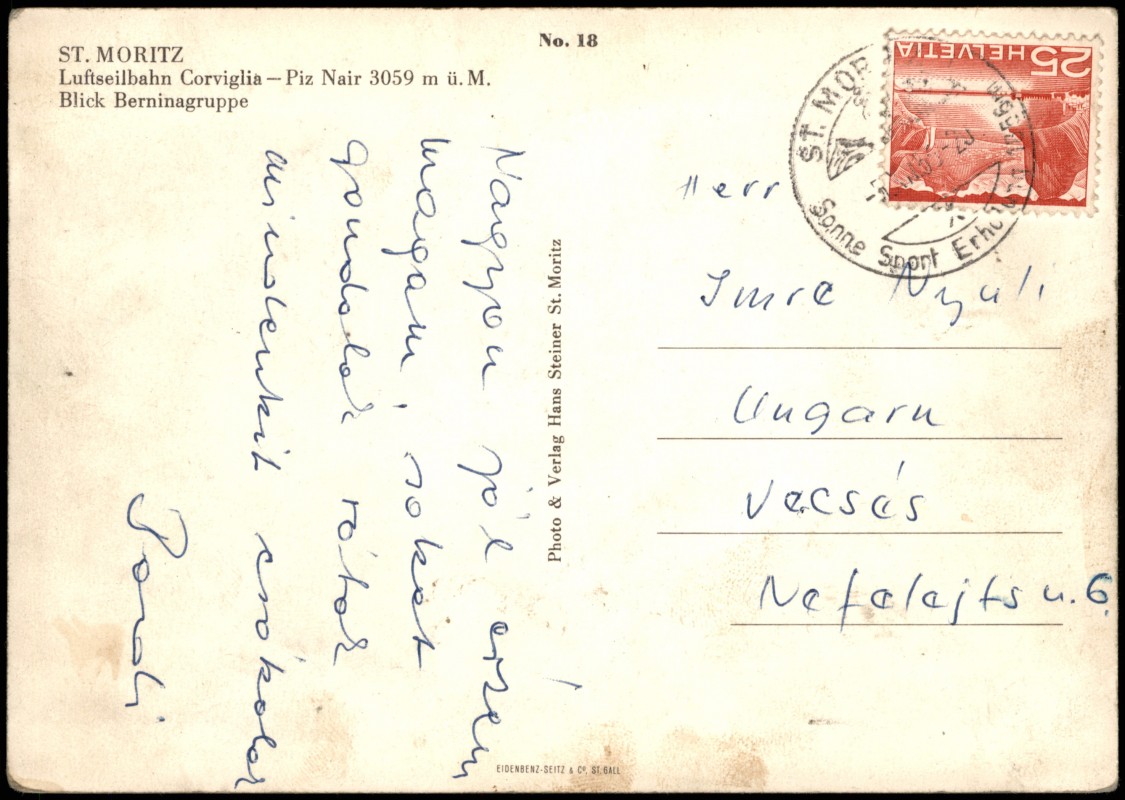 ST. MORITZ
Luftseilbahn Corviglia — Piz Nair 3059 m ü. M.
Blick Berninagruppe
No. 18
Nagyon jól érzem
magam, sokat
gondolok rátok
mindenkit csókolok
Photo & Verlag Hans Steiner St. Moritz
HELVETIA 25
ST. MOR
Sonne Sport Erho
Herr
Imre Nyúli
Ungarn
Vecsés
Nefelejts u. 6.
EIDENBENZ-SEITZ & Co. ST. GALL